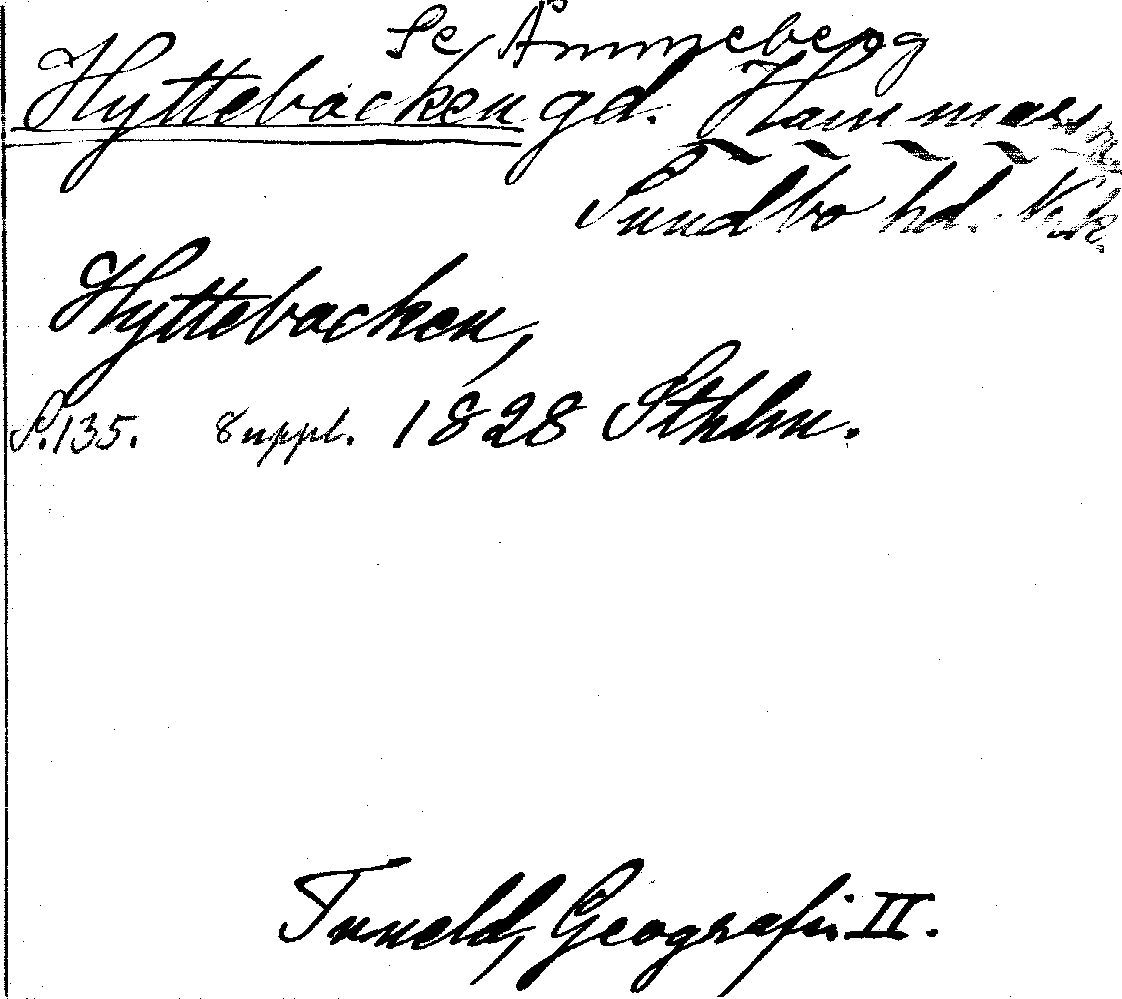 Se Åmmeberg
Hyttebacken gd. Hammars
Sundbo hd. Nrk.
Hyttebacken,
S. 135. Suppl. 1828 Sthlm.
Tuneld, Geografi II.